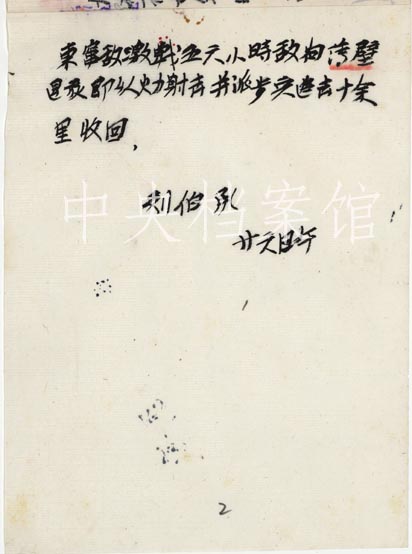 東窜敌激戰五六小時敌向壁
退我即以火力射击并派步兵追去十余
里收回，
刘伯承
中央档案馆
廿六日午
2